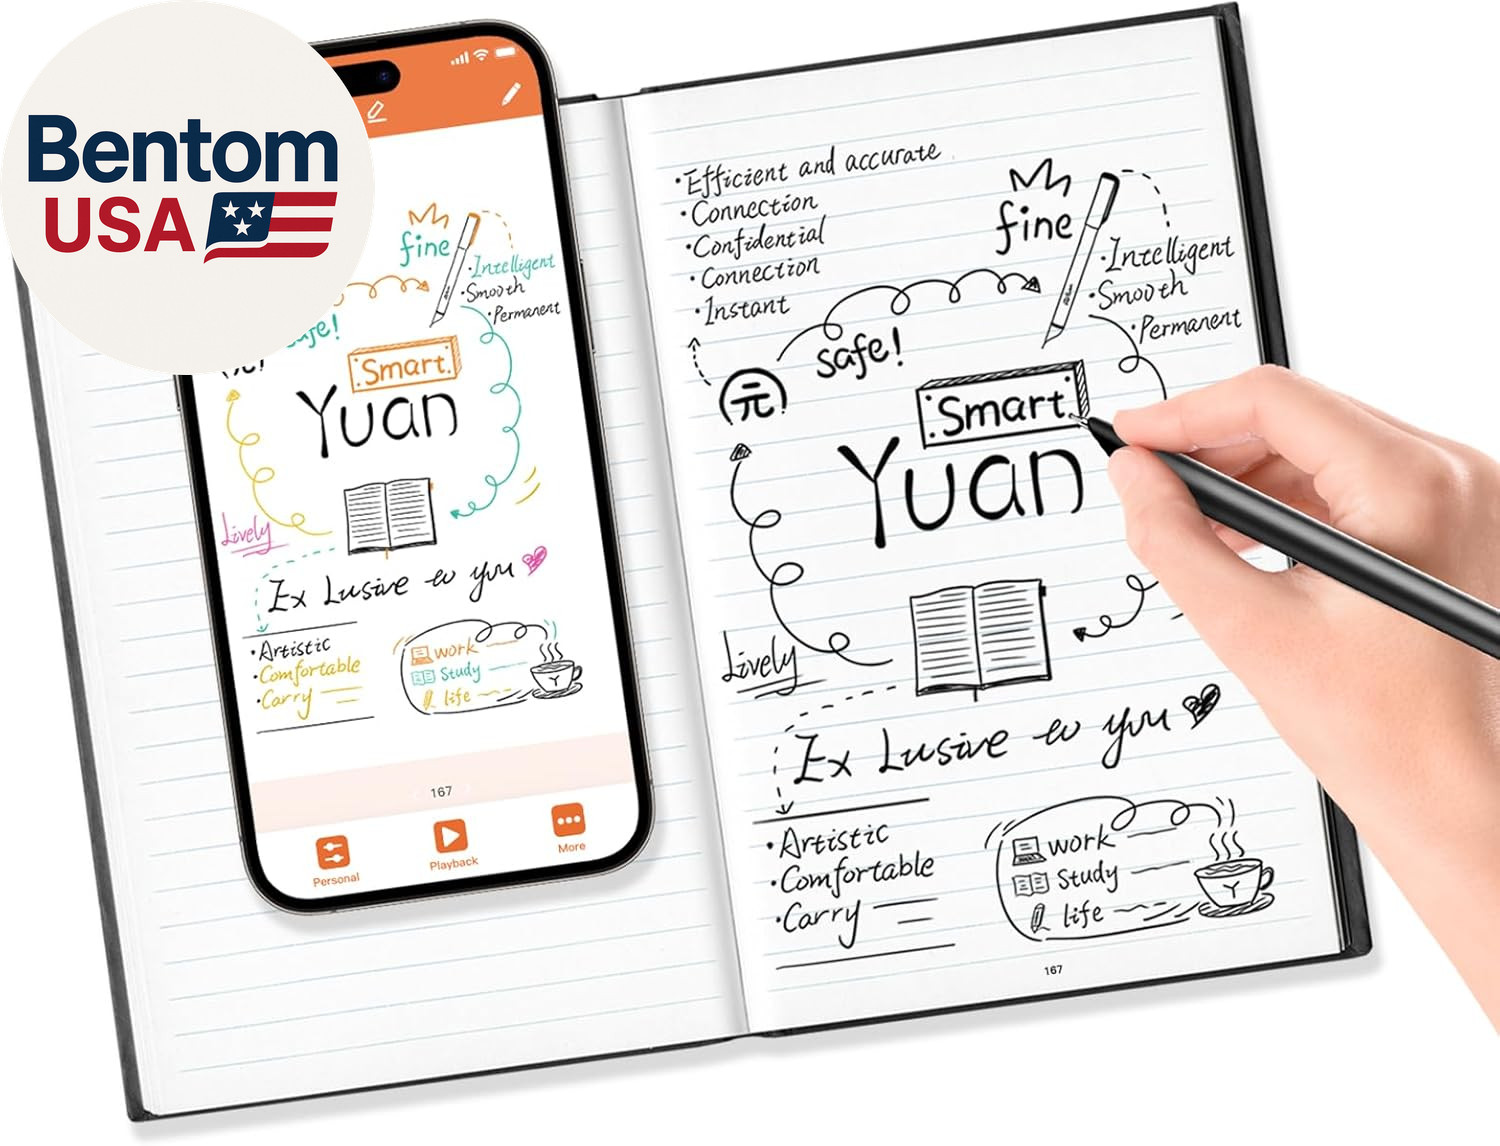 Bentom
USA
fine
·Intelligent
·Smooth
·Permanent
safe!
Smart
Yuan
Lively
Ex Lusive to you
·Artistic
·Comfortable
·Carry
work
Study
life
Y
167
Personal
Playback
More
·Efficient and accurate
·Connection
·Confidential
·Connection
·Instant
fine
·Intelligent
·Smooth
·Permanent
safe!
元
Smart
Yuan
Lively
Ex Lusive to you
·Artistic
·Comfortable
·Carry
work
Study
life
Y
167